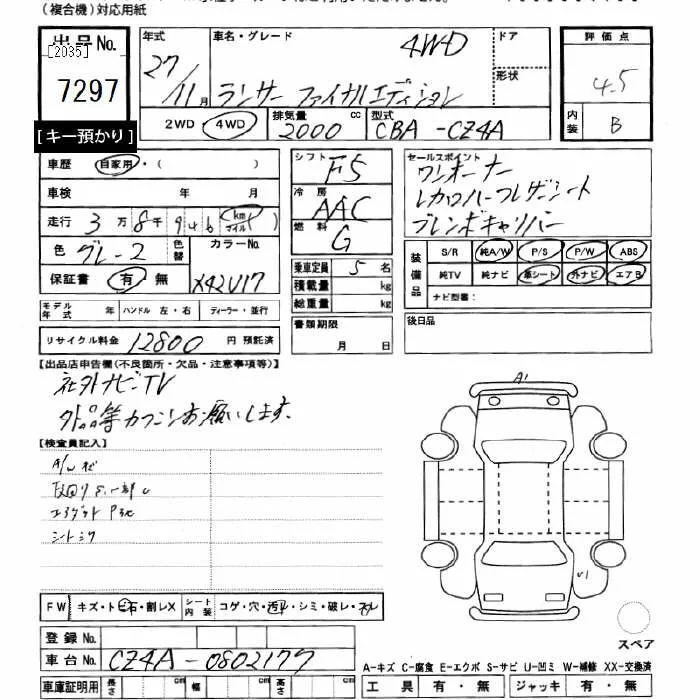 (複合機)対応用紙
出品No. [2035] 7297
[キー預かり]
年式 27/11月
車名・グレード 4WD
ランサー ファイナルエディション
ドア
形状
評価点 4.5
内装 B
2WD・4WD 排気量 2000cc 型式 CBA-CZ4A
車歴 自家用・( )
車検 年 月
走行 3万8千946 (km マイル)
色 グレー2 色替 カラーNo. X42U17
保証書 有・無
シフト F5
冷房 AAC
燃料 G
乗車定員 5名
積載量 kg
総重量 kg
書類期限 月 日
セールスポイント
ワンオーナー
レカロハーフレザーシート
ブレンボキャリパー
装備品 S/R 純A/W P/S P/W ABS
純TV 純ナビ 革シート 外ナビ エアB
ナビ型番:
後日品
モデル年式 年 ハンドル 左・右 ディーラー・並行
リサイクル料金 12800円 預託済
【出品店申告欄(不良箇所・欠品・注意事項等)】
社外ナビTV
外品等カクニンお願いします。
【検査員記入】
A1
U1
FW キズ・トビ石・割レX シート内装 コゲ・穴・汚レ・シミ・破レ・スレ
登録No.
車台No. CZ4A-0802177
車庫証明用 長さ cm 幅 cm 高さ cm
スペア
A-キズ C-腐食 E-エクボ S-サビ U-凹ミ W-補修 XX-交換済
工具 有・無 ジャッキ 有・無